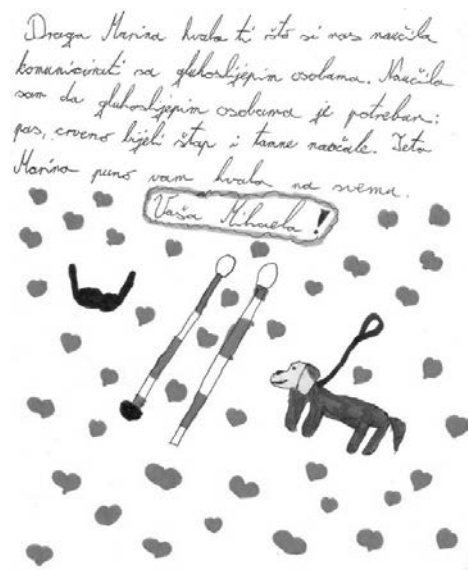 Draga Marina hvala ti što si nas naučila
komunicirati sa gluhoslijepim osobama. Naučila
sam da gluhoslijepim osobama je potreban:
pas, crveno bijeli štap i tamne naočale. Teta
Marina puno vam hvala na svemu.
Vaša Mihaela!